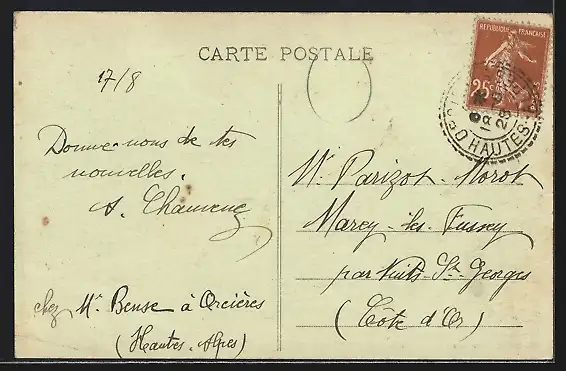 CARTE POSTALE
REPUBLIQUE FRANÇAISE
25c
HAUTES
17/8
Donne-nous de tes
nouvelles.
A.
chez Mr Bense à Orcières
(Hautes-Alpes)
Mr Parizot-Morot
Marey-les-Fussey
par Nuits-St-Georges
(Côte d'Or)